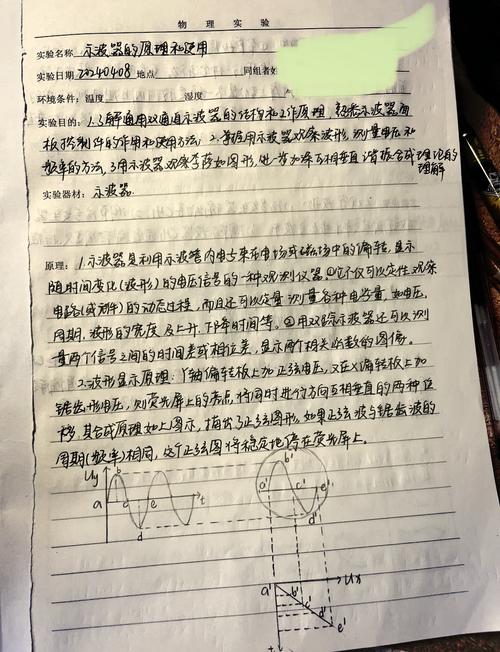 物理实验
实验名称 示波器的原理和使用
实验日期 20240408 地点 同组者姓
环境条件：温度 湿度
实验目的：1.了解通用双通道示波器的结构和工作原理，熟悉示波器面
板控制件的作用和使用方法 2.掌握用示波器观察波形，测量电压和
频率的方法，3.用示波器观察李萨如图形，进一步加深互相垂直谐振合成理论的
理解
实验器材：示波器.
原理：1.示波器是利用示波管内电子束在电场或磁场中的偏转，显示
随时间变化(波形)的电压信号的一种观测仪器①它不仅可以定性观察
电路(或动件)的动态过程，而且还可以定量测量各种电学量，如电压，
周期，波形的宽度及上升、下降时间等。②用双踪示波器还可以测
量两个信号之间的时间差或相位差，显示两个相关函数的图像。
2.波形显示原理：Y轴偏转板上加正弦电压，又在X偏转板上加
锯齿形电压，则荧光屏上的亮点将同时进行方向互相垂直的两种位
移，其合成原理如上图示，描出了正弦图形。如果正弦波与锯齿波的
周期(频率)相同，这个正弦图将稳定地停在荧光屏上。
Uy
a b d e t
a' b' c' d' e'
Ux
a' b' c' d' e'
t